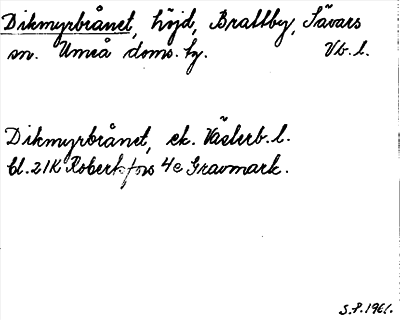 Dikmyrbrånet, höjd, Brattby, Sävars
sn. Umeå doms. hg. Vb. l.
Dikmyrbrånet, ek. Västerb. l.
bl. 21K Robertsfors 4e Gravmark.
S.P. 1961.